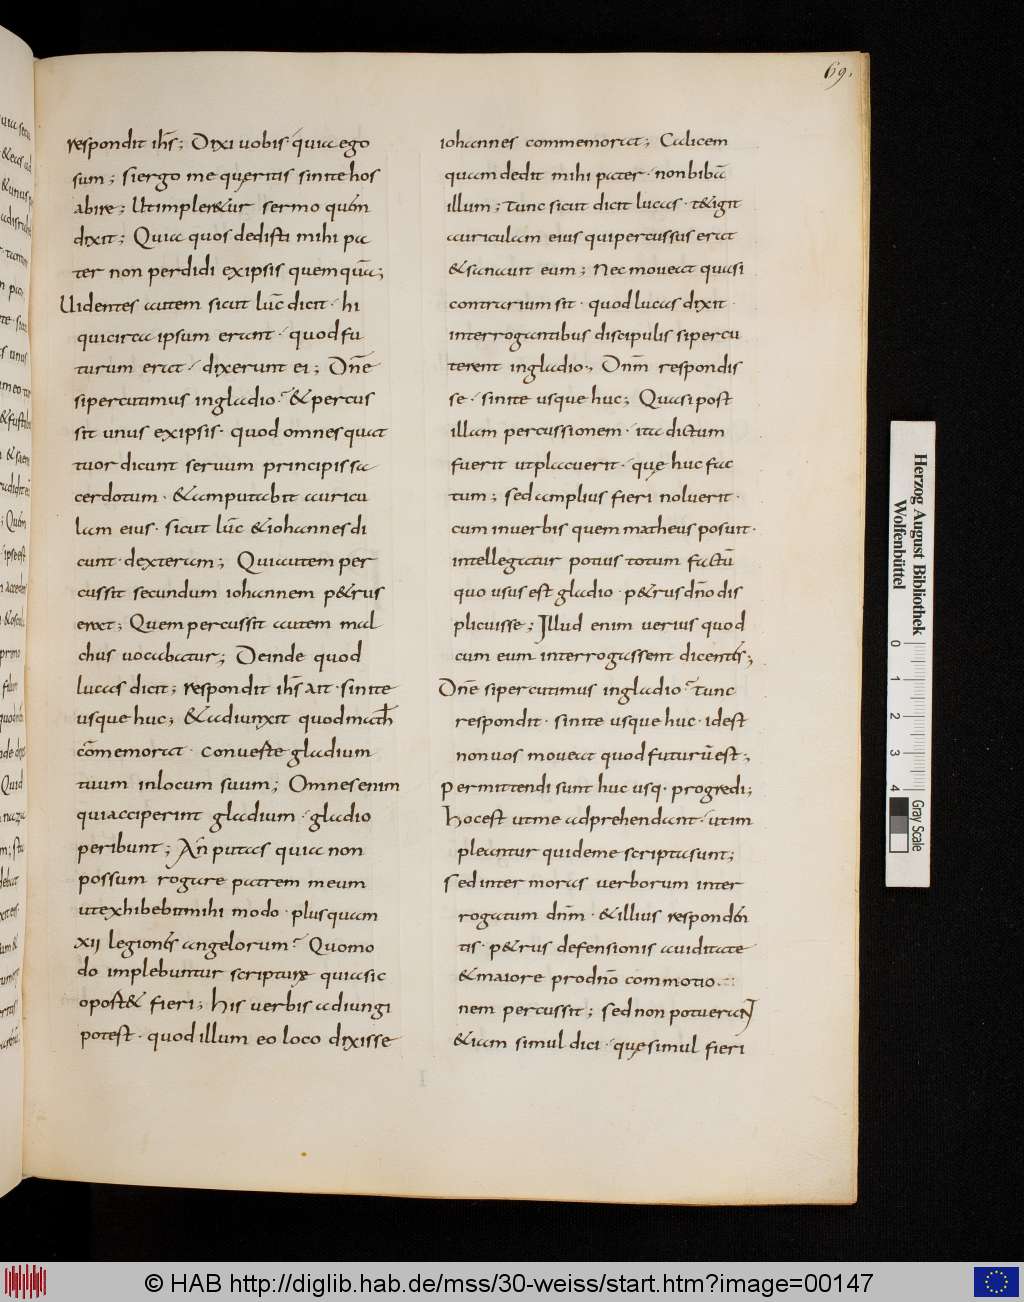 69.
respondit ih̄s; Dixi uobis· quia ego
sum; si ergo me quęritis sinite hos
abire; Ut impler&ur sermo quē
dixit; Quia quos dedisti mihi pa
ter non perdidi ex ipsis quemquā;
Uidentes autem sicut luc̄ dicit· hi
qui circa ipsum erant· quod fu
turum erat· dixerunt ei; Dn̄e
si percutimus in gladio? & percus
sit unus ex ipsis· quod omnes quat
tuor dicunt seruum principis sa
cerdotum· & amputabit auricu
lam eius· sicut luc̄ & iohannes di
cunt· dexteram; Qui autem per
cussit secundum iohannem p&rus
erat; Quem percussit autem mal
chus uocabatur; Deinde quod
lucas dicit; respondit ih̄s ait· sinite
usque huc; & adiunxit quod math̄
cōmemorat· Conuerte gladium
tuum in locum suum; Omnes enim
qui acciperint gladium· gladio
peribunt; An putas quia non
possum rogare patrem meum
ut exhibebit mihi modo· plus quam
xii legiones angelorum? Quomo
do implebuntur scripturę quia sic
oport& fieri; his uerbis adiungi
potest· quod illum eo loco dixisse
iohannes commemorat; Calicem
quam dedit mihi pater· non bibā
illum; tunc sicut dicit lucas· t&igit
auriculam eius qui percussus erat
& sanauit eum; Nec moueat quasi
contrarium sit· quod lucas dixit·
interrogantibus discipulis si percu
terent in gladio·, Dn̄m respondis
se· sinite usque huc; Quasi post
illam percussionem· ita dictum
fuerit ut placuerit· quę huc fac
tum; sed amplius fieri noluerit·
cum in uerbis quem matheus posuit·
intellegatur potius totum factū
quo usus est gladio· p&rus dn̄o dis
plicuisse; Illud enim uerius quod
cum eum interrogassent dicentes;
Dn̄e si percutimus in gladio? tunc
respondit· sinite usque huc· id est
non uos moueat quod futurū est·,
Permittendi sunt huc usq· progredi;
hoc est ut me adprehendant· ut im
pleantur qui de me scripta sunt;
Sed inter moras uerborum inter
rogatum dn̄m· & illius responden
tis· p&rus defensionis auiditate
& maiore pro dn̄o commotio
nem percussit; sed non potuerant
& iam simul dici· quę simul fieri
Herzog August Bibliothek
Wolfenbüttel
0 1 2 3 4
Gray Scale
© HAB http://diglib.hab.de/mss/30-weiss/start.htm?image=00147